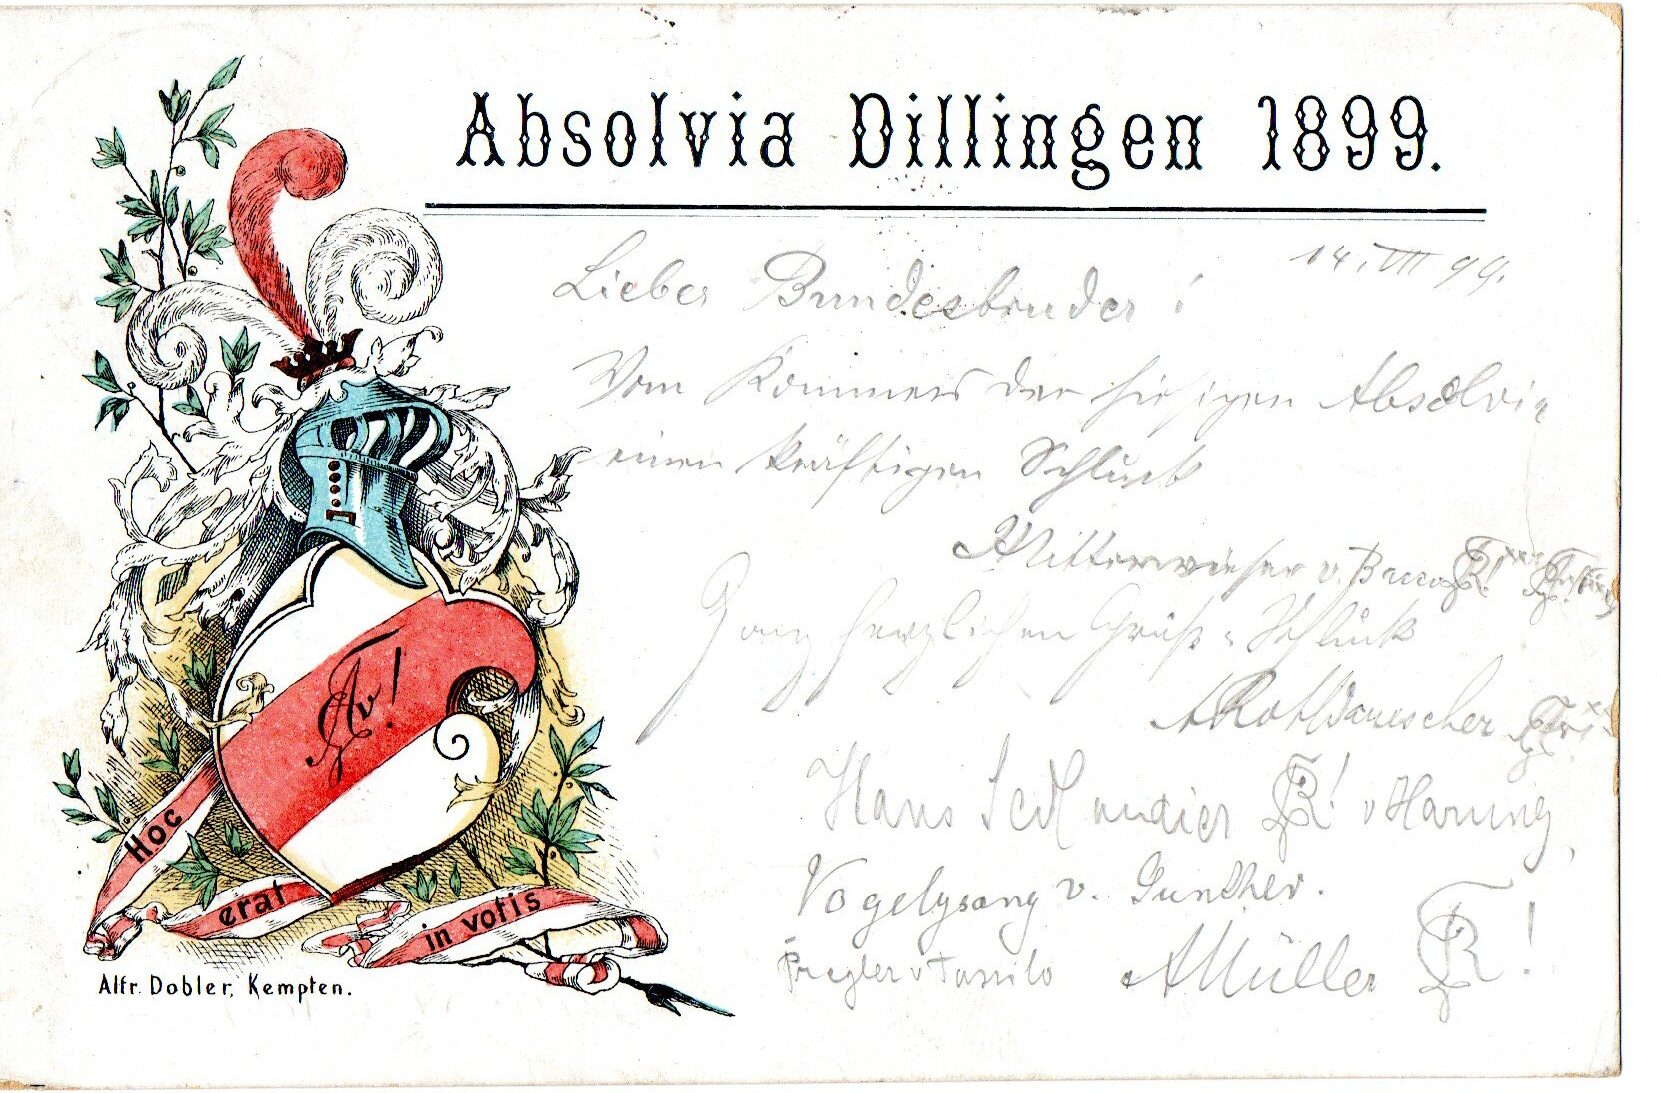 Absolvia Dillingen 1899.
14. VIII 99.
Lieber Bundesbruder!
Vom Kommers der hiesigen Absolvia
einen kräftigen Schluck
Mitterwieser v.
Ganz herzlichen Gruß u. Schluck
Hans Sedlmaier v Harung,
Vogelgsang v. Gunther.
v Tassilo AMüller
Av!
Hoc erat in votis
Alfr. Dobler, Kempten.